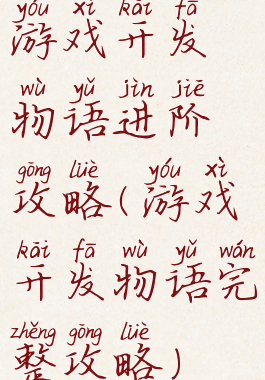 yóu xì kāi fā
游戏开发
wù yǔ jìn jiē
物语进阶
gōng lüè yóu xì
攻略(游戏
kāi fā wù yǔ wán
开发物语完
zhěng gōng lüè
整攻略)